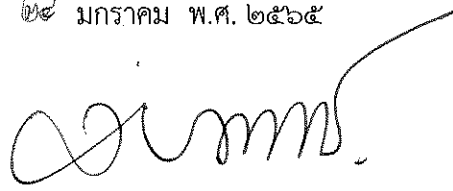 ๒๔ มกราคม พ.ศ. ๒๕๖๕